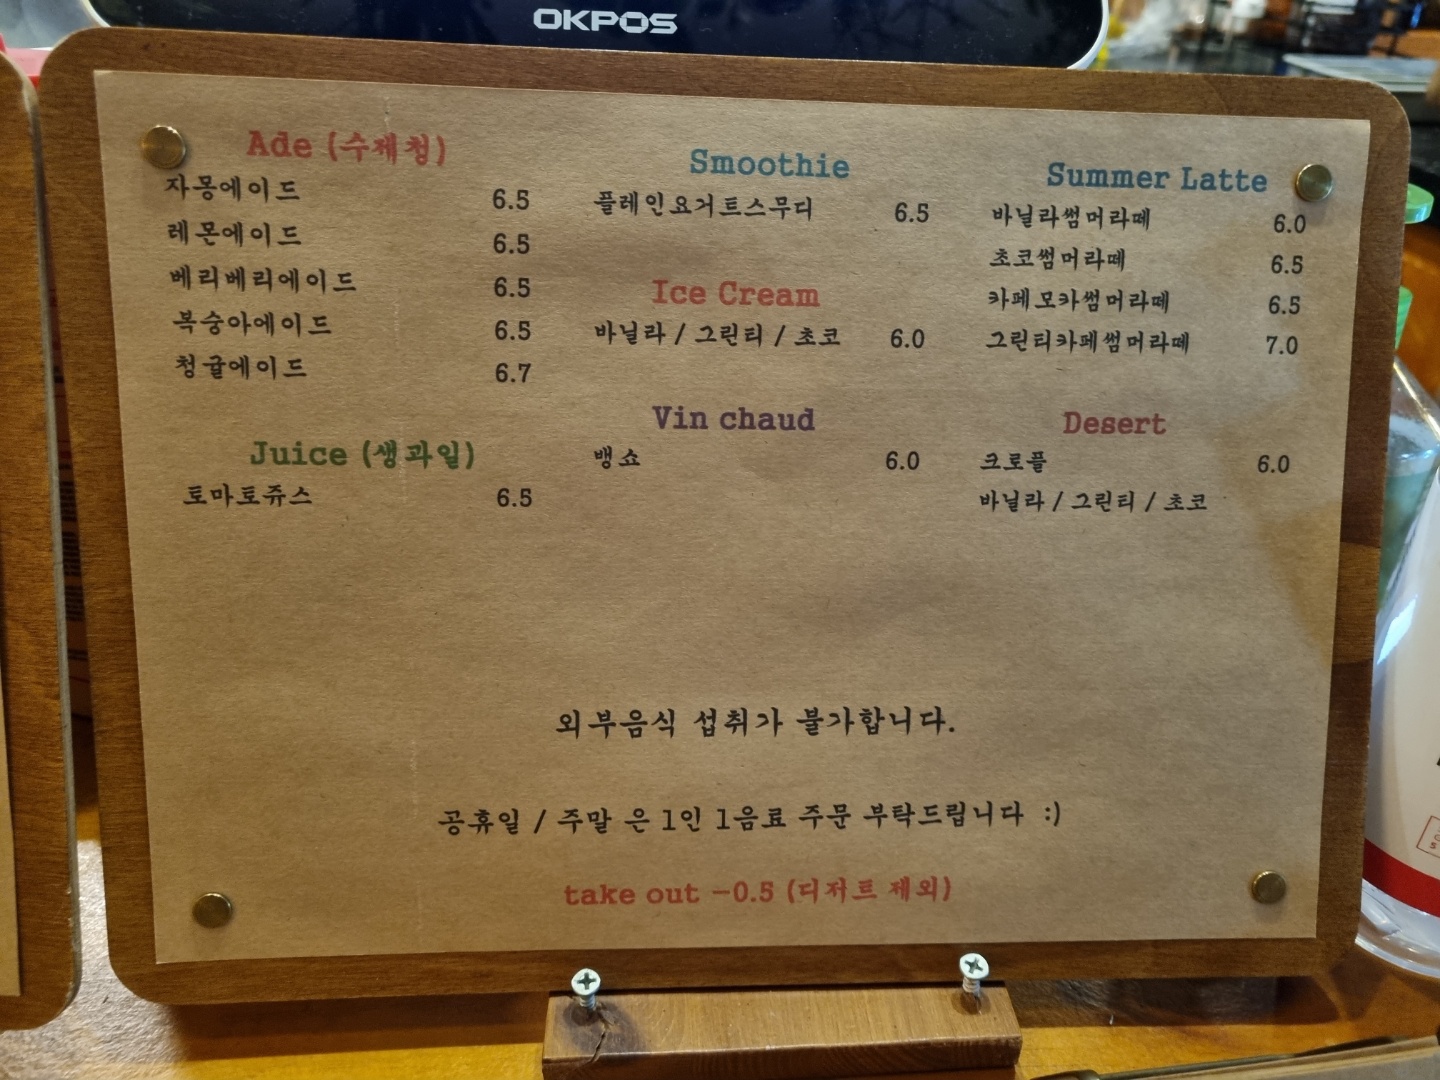 OKPOS
Ade (수제청)
자몽에이드 6.5
레몬에이드 6.5
베리베리에이드 6.5
복숭아에이드 6.5
청귤에이드 6.7
Juice (생과일)
토마토쥬스 6.5
Smoothie
플레인요거트스무디 6.5
Ice Cream
바닐라 / 그린티 / 초코 6.0
Vin chaud
뱅쇼 6.0
Summer Latte
바닐라썸머라떼 6.0
초코썸머라떼 6.5
카페모카썸머라떼 6.5
그린티카페썸머라떼 7.0
Desert
크로플 6.0
바닐라 / 그린티 / 초코
외부음식 섭취가 불가합니다.
공휴일 / 주말 은 1인 1음료 주문 부탁드립니다 :)
take out -0.5 (디저트 제외)